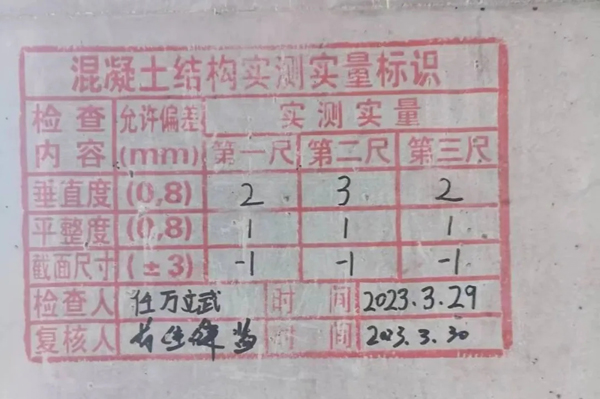 混凝土结构实测实量标识
检查内容 允许偏差(mm) 实测实量
第一尺 第二尺 第三尺
垂直度 (0,8) 2 3 2
平整度 (0,8) 1 1 1
截面尺寸 (±3) -1 -1 -1
检查人 任万立武 时间 2023.3.29
复核人 时间 2023.3.30